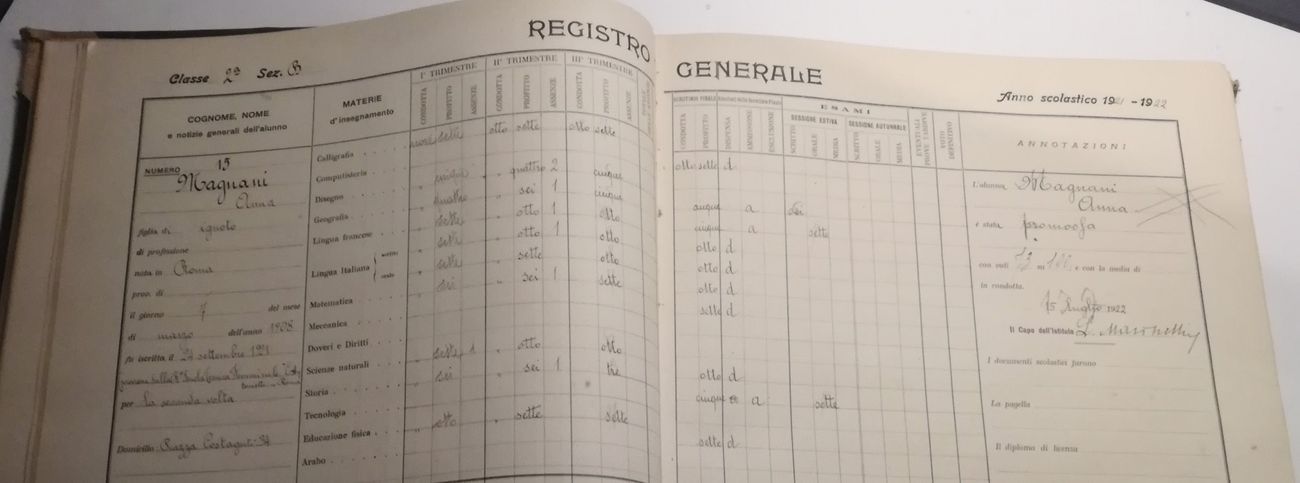 REGISTRO GENERALE
Classe 2ª Sez. B
Anno scolastico 1921 - 1922
COGNOME, NOME
e notizie generali dell'alunno
MATERIE
d'insegnamento
I° TRIMESTRE
II° TRIMESTRE
III° TRIMESTRE
CONDOTTA
PROFITTO
ASSENZE
CONDOTTA
PROFITTO
ASSENZE
CONDOTTA
PROFITTO
ASSENZE
SCRUTINIO FINALE
CONDOTTA
PROFITTO
DISPENSA
AMMISSIONE
ESCLUSIONE
ESAMI
SESSIONE ESTIVA
SCRITTO
ORALE
MEDIA
SESSIONE AUTUNNALE
SCRITTO
ORALE
MEDIA
EVENTUALI
PROVE TARDIVE
VOTO
DEFINITIVO
ANNOTAZIONI
NUMERO 15
Magnani
Anna
figlia di ignoto
di professione
nata in Roma
prov. di
il giorno 7 del mese
di marzo dell'anno 1908
fu iscritta il 24 settembre 1921
per la seconda volta
Domicilio Piazza Costaguti 34
Calligrafia nove sette otto sette otto sette otto sette d
Computisteria
quattro 2 cinque
Disegno
quattro sei 1 cinque cinque a sei
Geografia sette otto 1 otto cinque a sette
Lingua francese sette otto 1 otto otto d
Lingua Italiana
sette sette otto otto d
sei sei 1 sette sette d
Matematica
Meccanica
Doveri e Diritti sette 1 otto otto
Scienze naturali sei sei 1 tre otto d
Storia cinque a sette
Tecnologia otto sette sette
Educazione fisica sette d
Arabo
L'alunna Magnani
Anna
è stata promossa
con voti su e con la media di
in condotta.
15 Luglio 1922
Il Capo dell'Istituto
I documenti scolastici furono
La pagella
Il diploma di licenza